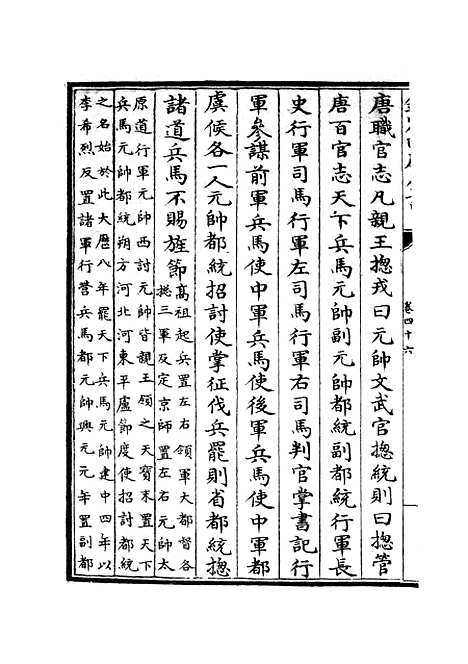 唐職官志凡親王揔戎曰元帥文武官揔統則曰揔管
唐百官志天下兵馬元帥副元帥都統副都統行軍長
史行軍司馬行軍左司馬行軍右司馬判官掌書記行
軍參謀前軍兵馬使中軍兵馬使後軍兵馬使中軍都
虞候各一人元帥都統招討使掌征伐兵罷則省都統揔
諸道兵馬不賜旌節
高祖起兵置左右領軍大都督各
揔三軍及定京師置左右元帥太
原道行軍元帥西討元帥皆親王領之天寶末置天下
兵馬元帥都統朔方河北河東平盧節度使招討都統
之名始於此大曆八年罷天下兵馬元帥建中四年以
李希烈反置諸軍行營兵馬都元帥興元元年置副都
卷四十六